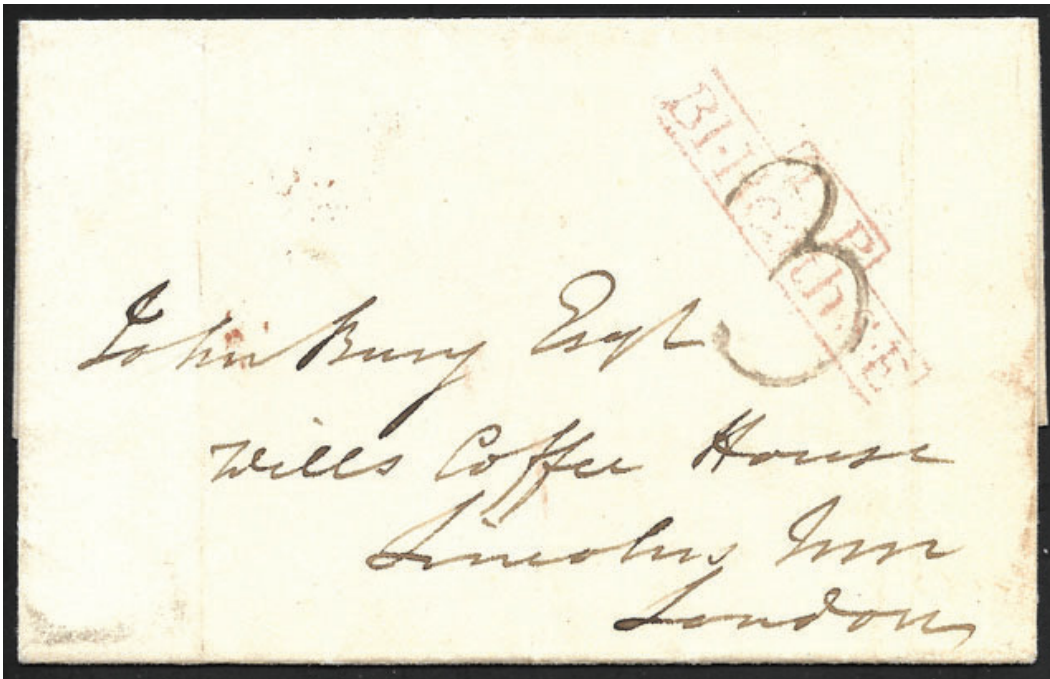 T.P
Bl-Heath.S.E
3
John Bury Esqr
Wills Coffee House
Lincolns Inn
London